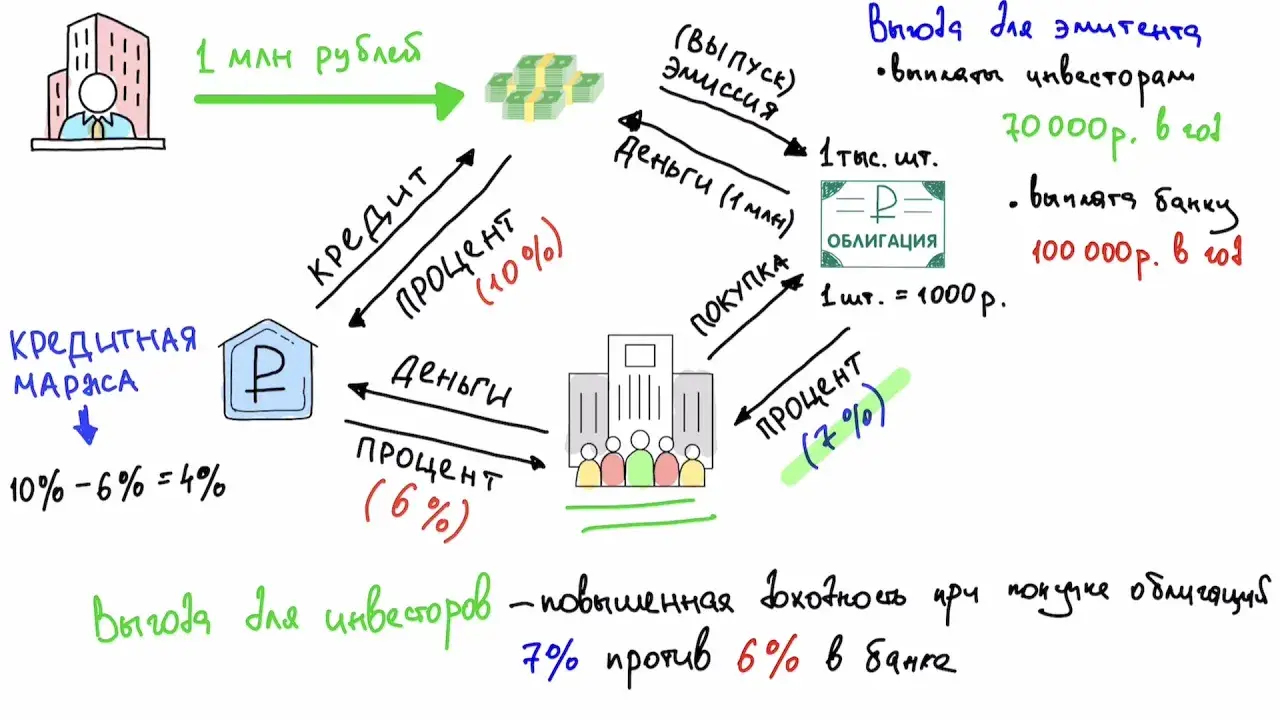 1 млн рублей
(ВЫПУСК)
ЭМИССИЯ
Деньги (1 млн)
Выгода для эмитента
• выплаты инвесторам
70 000р. в год
• выплата банку
100 000р. в год
1 тыс. шт.
₽
ОБЛИГАЦИЯ
1 шт. = 1000 р.
КРЕДИТ
ПРОЦЕНТ
(10%)
ПОКУПКА
ПРОЦЕНТ
(7%)
КРЕДИТНАЯ
МАРЖА
10% – 6% = 4%
₽
ДЕНЬГИ
ПРОЦЕНТ
(6%)
Выгода для инвесторов – повышенная доходность при покупке облигаций
7% против 6% в банке